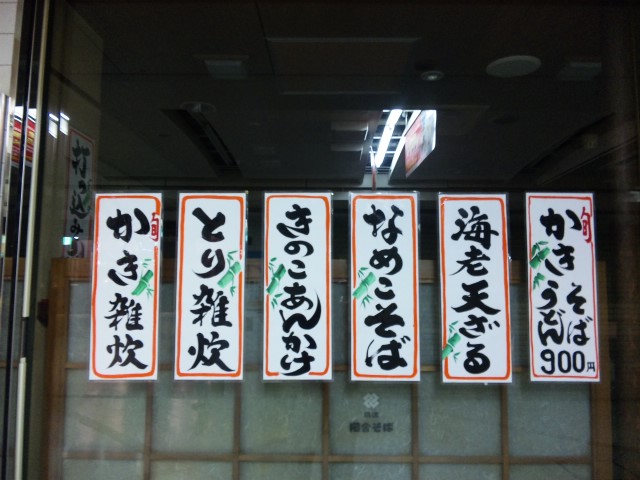 旬
かき雑炊
とり雑炊
きのこあんかけ
なめこそば
海老天ざる
旬
かき
そば
うどん
900円
打ち込み
田舎そば